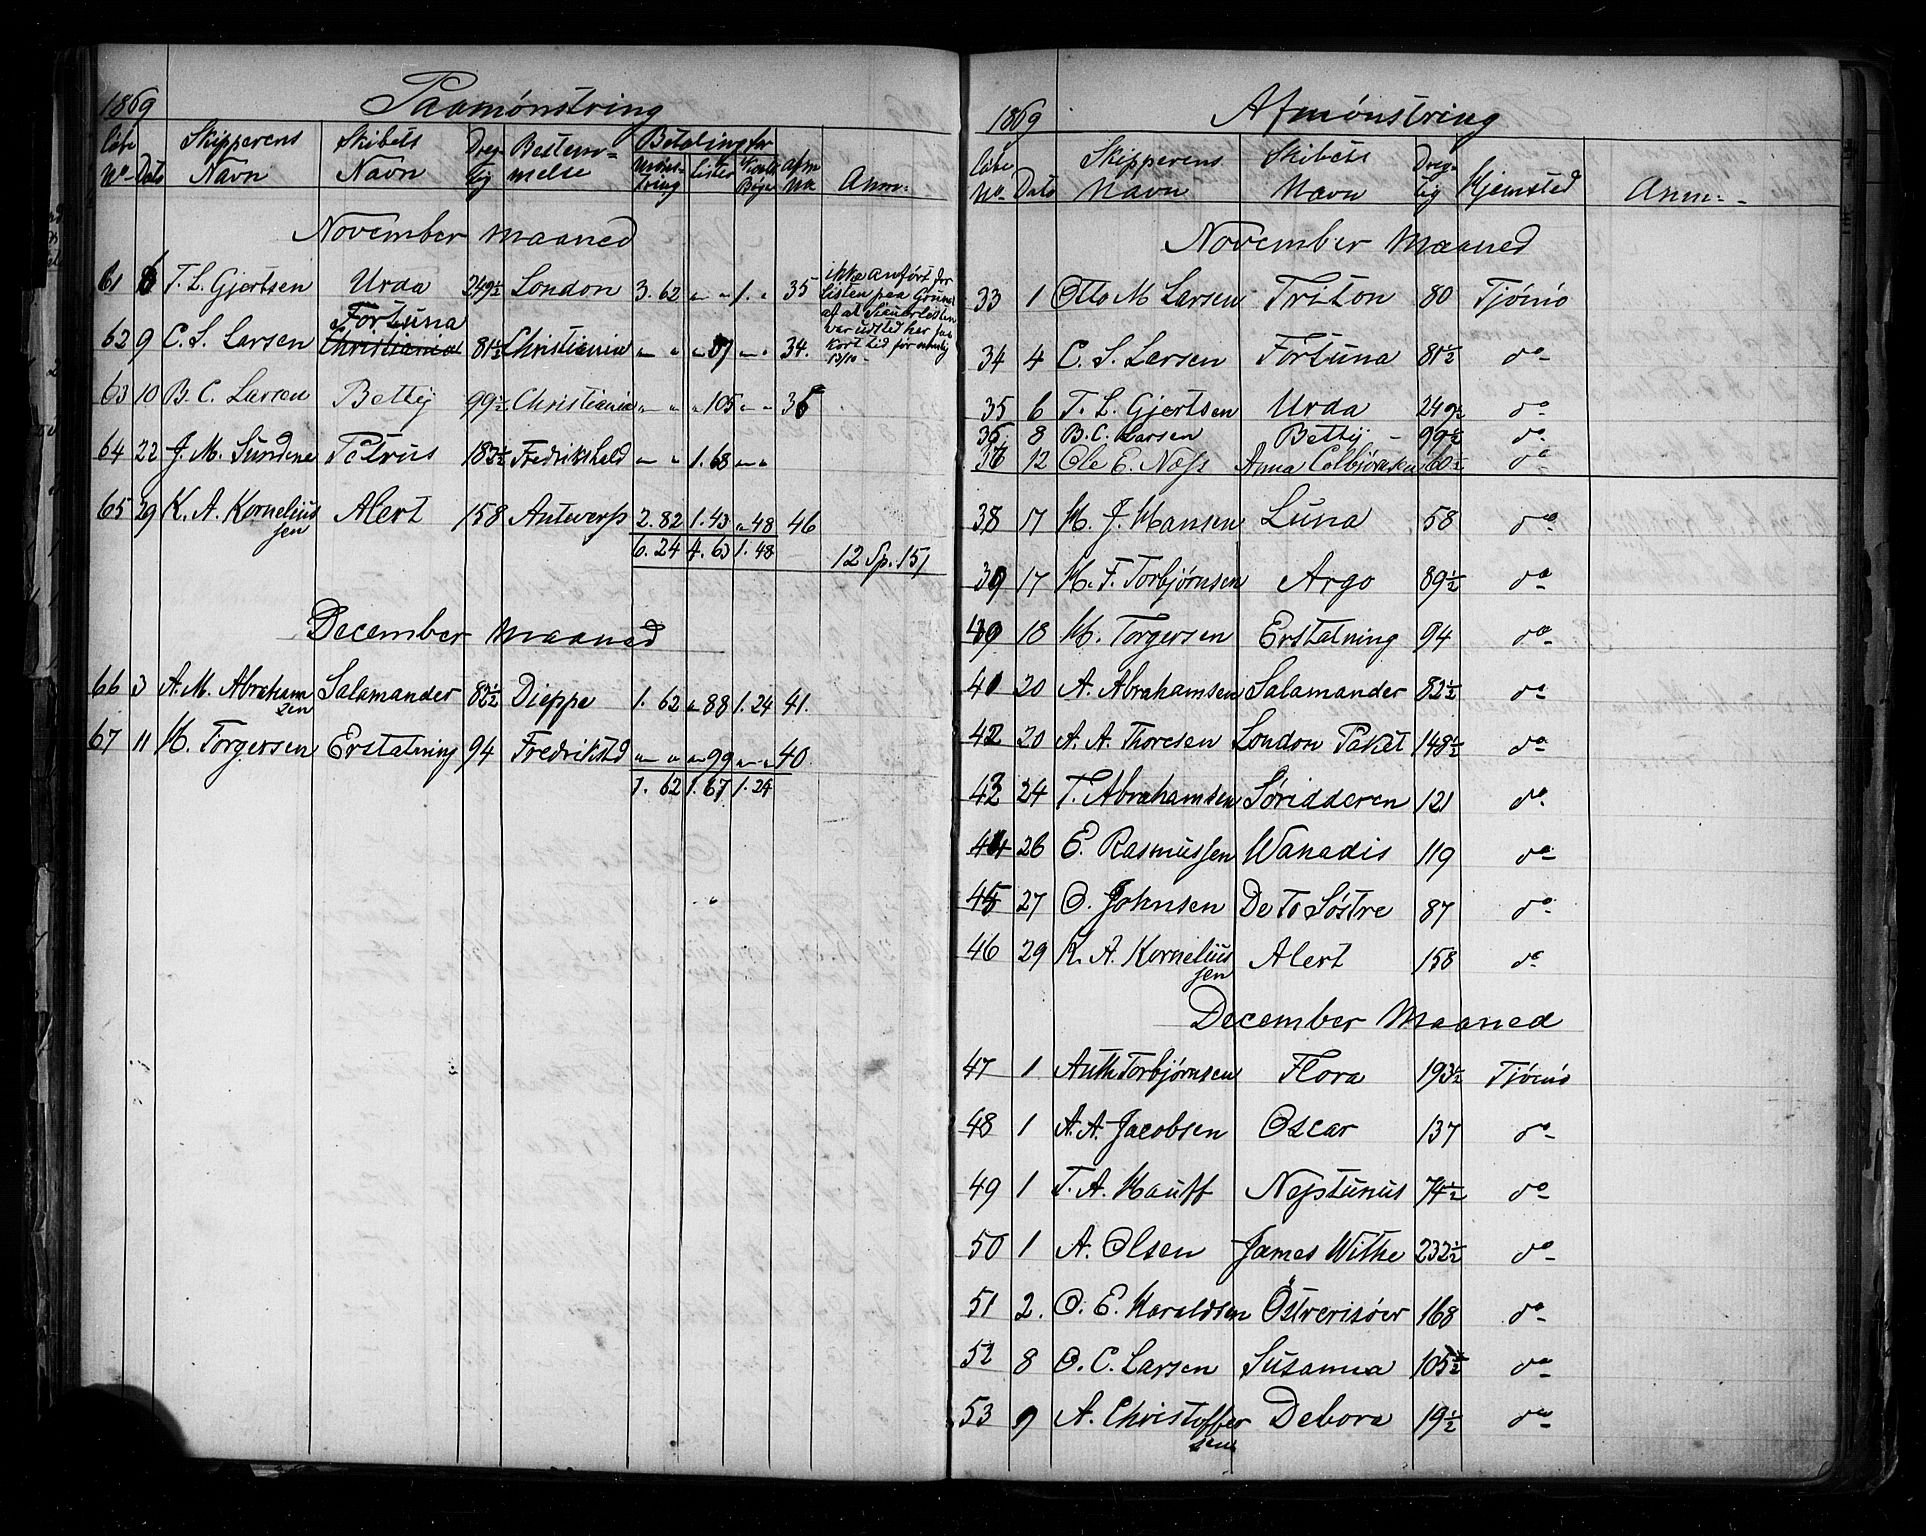 1869 Paamønstring
Løbe No Dato Skipperens Navn Skibets Navn Dræg-tig Bestem-melse Betaling for Mønst-ring Lister Kontr Bøger Afm No Anm:
November Maaned
61 6 T. L. Gjertsen Urda 249½ London 3. 62 " " 1. " 35 ikke anført for
listen paa Grund
af at
var udsted her for
kort Tid før nemlig
13/10
62 9 C. S. Larsen Fortuna Christiania 81½ Christiania " " " 87 " " 34.
63 10 B. C. Larsen Bettij 99½ Christiania " " " 105 " " 36
64 22 J. M. Sundene Petrus 183½ Fredrikshald " " 1. 68 " "
65 29 K. A. Korneliussen Alert 158 Antwerp 2. 82 1. 43 " 48 46
6. 24 4. 63 1. 48
12 Sp. 15/
December Maaned
66 3 A. M. Abrahamsen Salamander 82½ Dieppe 1. 62 " 88 1. 24 41.
67 11 H. Torgersen Erstatning 94 Fredrikstd " " " 99 " " 40
1. 62 1. 67 1. 24
1869 Afmønstring
Løbe No Dato Skipperens Navn Skibets Navn Dræg-tig Hjemsted Anm:
November Maaned
33 1 Otto M Larsen Triton 80 Tjømø
34 4 C. S. Larsen Fortuna 81½ do
35 6 T. L. Gjertsen Urda 249½ do
36 8 B. C. Larsen Bettij 99½ do
37 12 Ole E. Næss Anna Colbjørnsen 60½ do
38 17 H. J. Hansen Luna 58 do
39 17 H. F. Torbjørnsen Argo 89½ do
40 18 H. Torgersen Erstatning 94 do
41 20 A. Abrahamsen Salamander 82½ do
42 20 A. A. Thoresen London Paket 148½ do
43 24 T. Abrahamsen Søridderen 121 do
44 26 E. Rasmussen Wanadis 119 do
45 27 O. Johnsen De To Søstre 87 do
46 29 K. A. Korneliussen Alert 158 do
December Maaned
47 1 Anth Torbjørnsen Flora 193½ Tjømø
48 1 A. A. Jacobsen Oscar 137 do
49 1 T. A. Hauff Neptunus 74½ do
50 1 A. Olsen James Withe 232½ do
51 2. O. E. Haraldsen Östrerisöer 168 do
52 8 O. C. Larsen Susanna 105½ do
53 9 A. Christoffersen Debora 19½ do